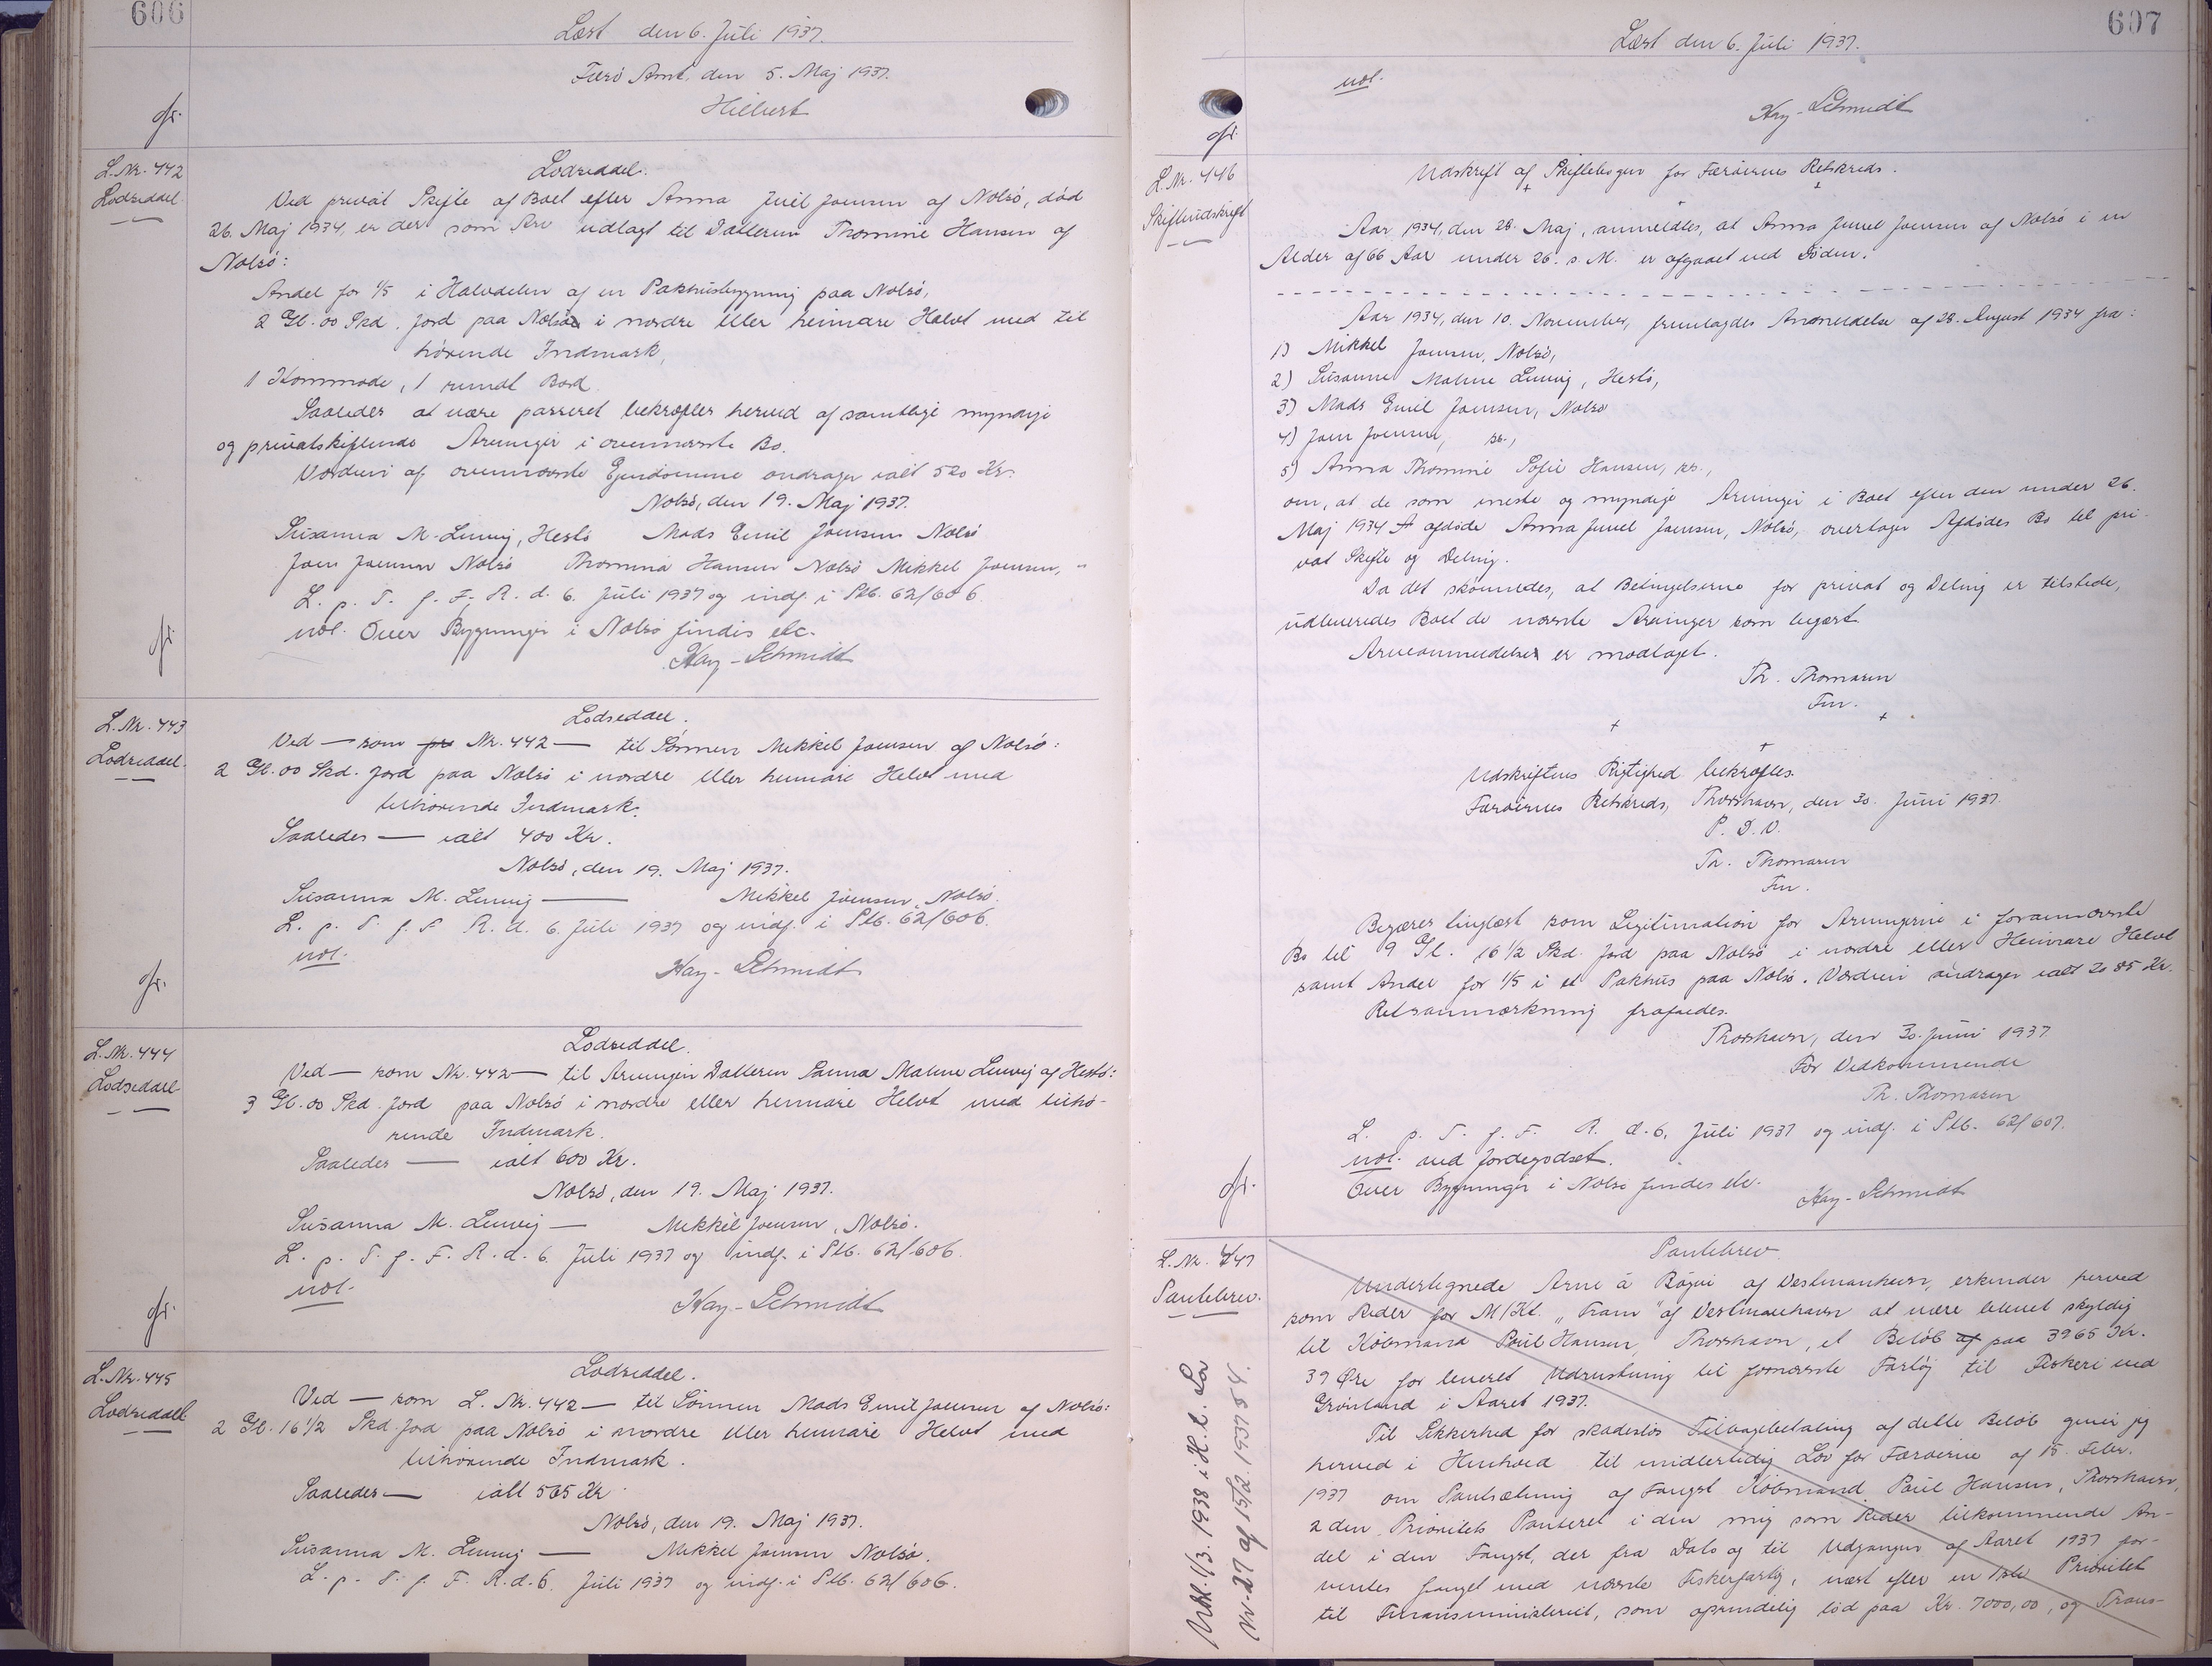 606
Læst den 6. Juli 1937.
Færø Amt, den 5. Maj 1937.
Hilbert
L.Nr. 442
Lodseddel
Lodseddel.
Ved privat Skifte af Boet efter Anna Juel Joensen af Nolsö, död
26. Maj 1934, er der som Arv udlagt til Datteren Thomine Hansen af
Nolsö:
Andel for 1/5 i Halvdelen af en Pakhusbygning paa Nolsö,
2 Gl. 00 Skd. Jord paa Nolsö i nordre eller heimare Halvt med til
hörende Indmark,
1 Kommode, 1 rundt Bord.
Saaledes at være passeret bekræftes herved af samtlige myndige
og privatskiftende Arvinger i ovennævnte Bo.
Værdien af ovennævnte Ejendomme andrager ialt 520 Kr.
Nolsö, den 19. Maj 1937.
Susanna M. Lervig, Hestö Mads Emil Joensen Nolsö
Joen Joensen Nolsö Thomina Hansen Nolsö Mikkel Joensen, "
L. p. T. f. F. R. d. 6. Juli 1937 og indf. i Ptb. 62/606.
ual. Over Bygninger i Nolsö findes etc.
Kay-Schmidt
L.Nr. 443
Lodseddel.
Lodseddel.
Ved — som Nr. 442 — til Sönnen Mikkel Joensen af Nolsö:
2 Gl. 00 Skd. Jord paa Nolsö i nordre eller heimare Helvt med
tilhörende Indmark.
Saaledes — ialt 400 Kr.
Nolsö, den 19. Maj 1937.
Susanna M. Lervig — Mikkel Joensen, Nolsö.
L. p. T. f. F. R. d. 6. Juli 1937 og indf. i Ptb. 62/606.
ual.
Kay-Schmidt
L.Nr. 444
Lodseddel
Lodseddel.
Ved — som Nr. 442 — til Arvingen Datteren Sanna Maline Lervig af Hestö:
3 Gl. 00 Skd. Jord paa Nolsö i nordre eller heimare Helvt med tilhö-
rende Indmark.
Saaledes — ialt 600 Kr.
Nolsö, den 19. Maj 1937.
Susanna M. Lervig — Mikkel Joensen, Nolsö.
L. p. T. f. F. R. d. 6. Juli 1937 og indf. i Ptb. 62/606.
ual.
Kay-Schmidt
L.Nr. 445
Lodseddel
Lodseddel.
Ved — som L. Nr. 442 — til Sönnen Mads Emil Joensen af Nolsö:
2 Gl. 16 1/2 Skd. Jord paa Nolsö i nordre eller heimare Helvt med
tilhörende Indmark.
Saaledes — ialt 565 Kr.
Nolsö, den 19. Maj 1937.
Susanna M. Lervig — Mikkel Joensen Nolsö.
L. p. T. f. F. R. d. 6. Juli 1937 og indf. i Ptb. 62/606.
607
Læst den 6. Juli 1937.
ual.
Kay-Schmidt
L.Nr. 446
Skifteudskrift
Udskrift af Skiftebogen for Færöernes Retskreds.
Aar 1934, den 28. Maj, anmeldtes, at Anna Juuel Joensen af Nolsö i en
Alder af 66 Aar under 26. s. M. er afgaaet ved Döden.
Aar 1934, den 10. November, fremlagdes Anmeldelse af 28. August 1934 fra:
1) Mikkel Joensen, Nolsö,
2) Susanne Maline Lervig, Hestö,
3) Mads Emil Joensen, Nolsö
4) Joen Joensen, sst.,
5) Anna Thomine Sofie Hansen, sst.,
om, at de som eneste og myndige Arvinger i Boet efter den under 26.
Maj 1934 afdöde Anna Juuel Joensen, Nolsö, overtager Afdödes Bo til pri-
vat Skifte og Deling.
Da det skönnedes, at Betingelserne for privat og Deling er tilstede,
udleveredes Boet de nævnte Arvinger som begært.
Arveanmeldelsen er modtaget.
Th. Thomasen
Fm.
Udskriftens Rigtighed bekræftes.
Færöernes Retskreds, Thorshavn, den 30. Juni 1937.
P. D. V.
Th. Thomasen
Fm.
Begæres tinglæst som Legitimation for Arvingerne i forannævnte
Bo til 9 Gl. 16 1/2 Skd. Jord paa Nolsö i nordre eller Heimare Helvt
samt Andel for 1/5 i et Pakhus paa Nolsö. Værdien andrager ialt 2085 Kr.
Retsanmærkning frafaldes.
Thorshavn, den 30. Juni 1937
For Vedkommende
Th. Thomasen
L. p. T. f. F. R. d. 6. Juli 1937 og indf. i Ptb. 62/607.
ual. ved Jordegodset.
Over Bygninger i Nolsö findes etc.
Kay-Schmidt
L.Nr. 447
Pantebrev.
Pantebrev
Undertegnede Arne á Bögvi af Vestmanhavn, erkender herved
som Reder for M/Kt. "Fram" af Vestmanhavn at være blevet skyldig
til Köbmand Poul Hansen, Thorshavn, et Belöb af paa 3965 Kr.
39 Øre for leveret Udrustning til fornævnte Fartöj til Fiskeri ved
Grönland i Aaret 1937.
Til Sikkerhed for skadeslös Tilbagebetaling af dette Belöb giver jeg
herved i Henhold til midlertidig Lov for Færöerne af 15. Febr.
1937 om Pantsætning af Fangst Köbmand Poul Hansen, Thorshavn,
2den Prioritets Panteret i den mig som Reder tilkommende An-
del i den Fangst, der fra Dato og til Udgangen af Aaret 1937 for-
ventes fanget med nævnte Fiskerfartöj, næst efter en 1ste Prioritet
til Finansministeriet, som oprindelig löd paa Kr. 7000,00, og Trans-
Udsl. 1/3. 1938 i H. t. Lov
Nr. 27 af 15/2. 1937 § 4.